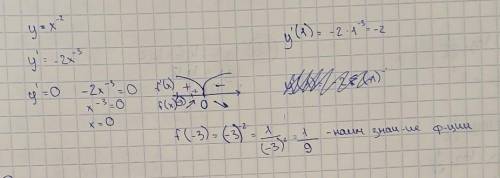 y = x⁻²
y' = -2x⁻³
y' = 0   -2x⁻³ = 0
x⁻³ = 0
x = 0
f'(x) + -
f(x) ↗ 0 ↘
y'(1) = -2 · 1⁻³ = -2
f(-3) = (-3)⁻² = 1/(-3)² = 1/9 - наим знач-ие ф-ции